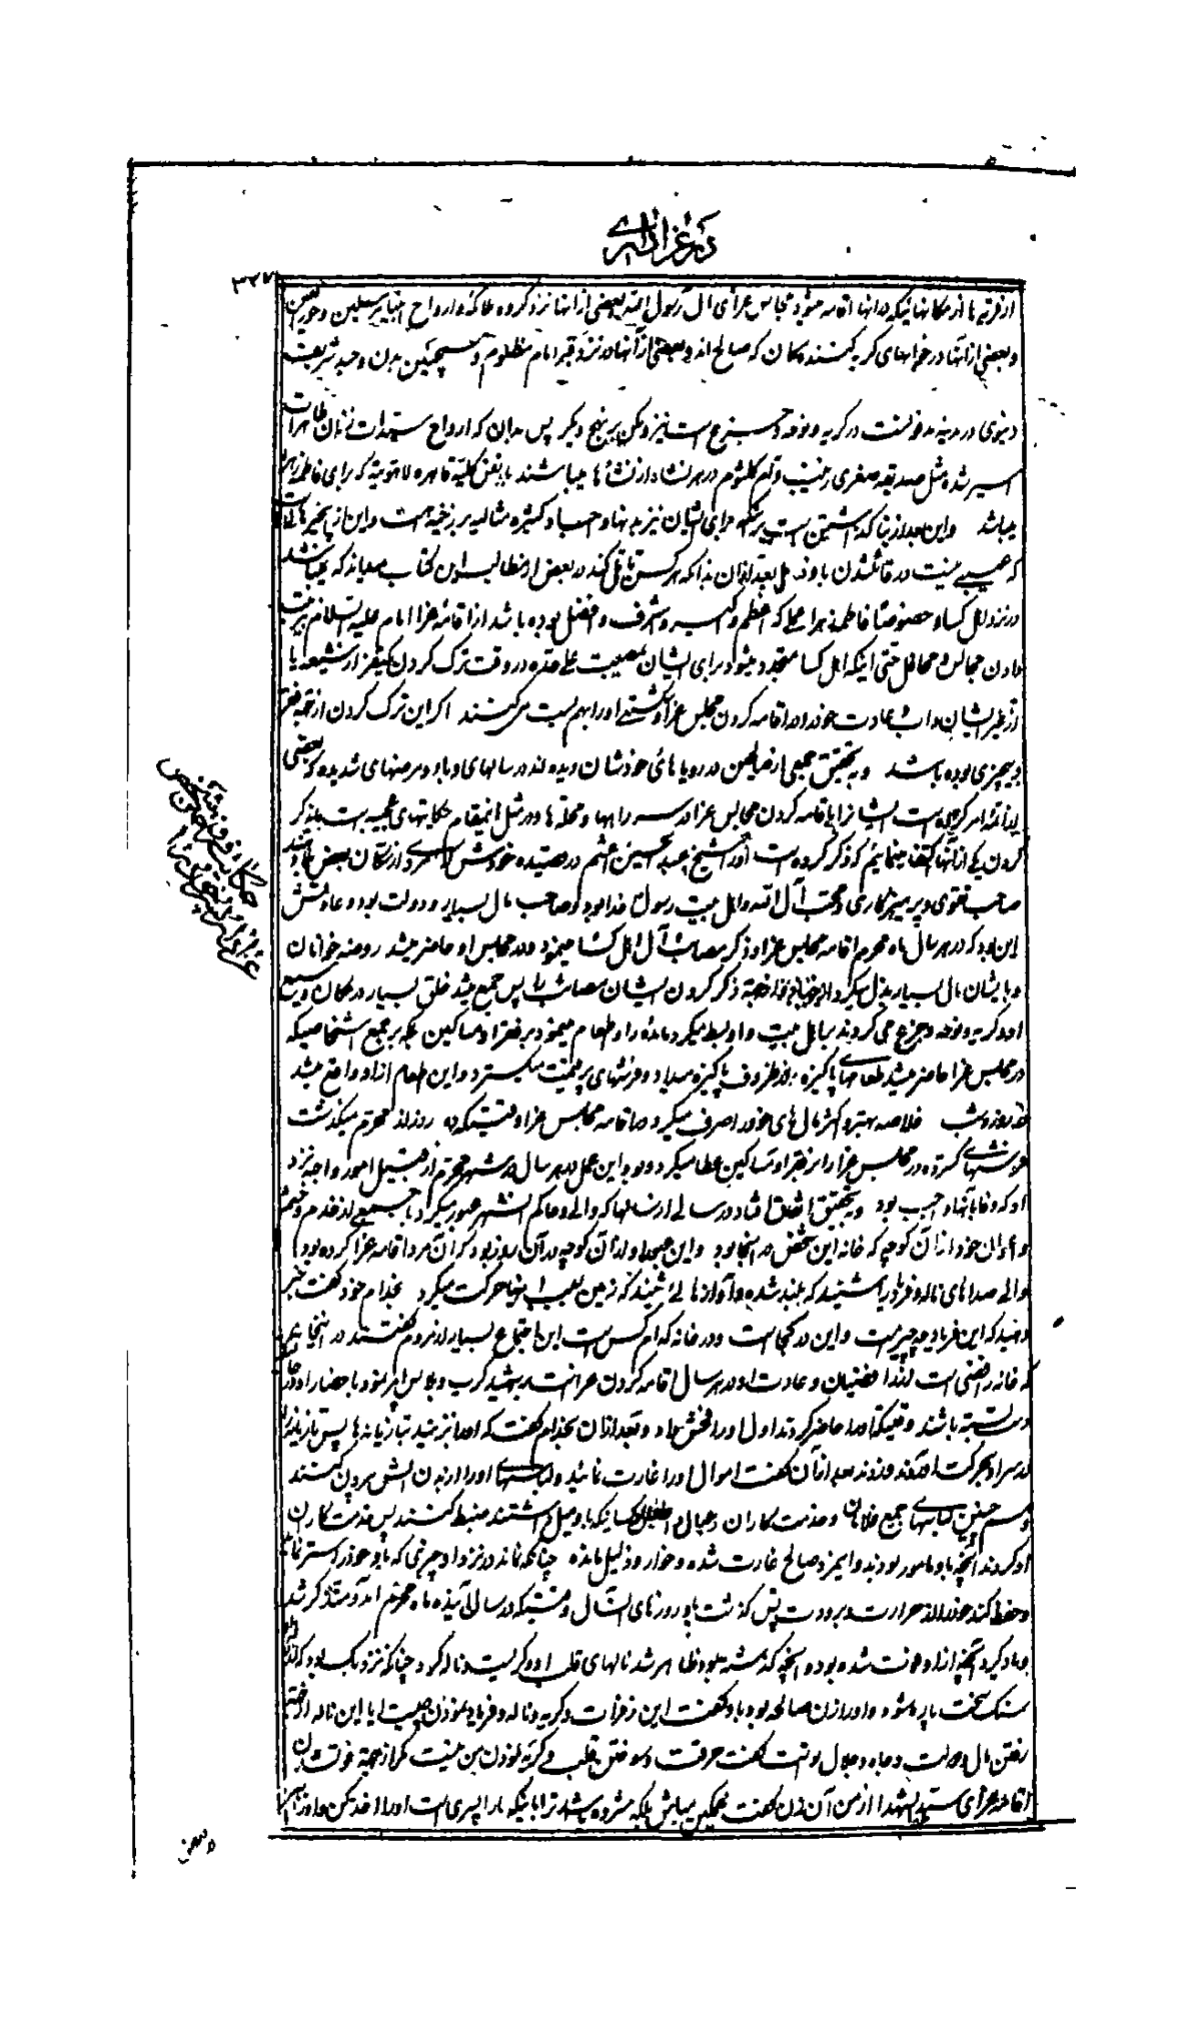 در عزاداری
۳۲۷
از قریه ها از مکانهائیکه در انها اقامه میشود مجالس عزای ال رسول الله و بعضی از انها نزد کروه ملائکه و ارواح انبیا و مرسلین و حور العین
و بعضی از آنها در خوابهای کریه کنندکان که صالح اند و بعضی از آنها در نزد قبر امام مظلوم و همچنین بدن و جسد شریف
دنیوی در مدینه مدفونست در کریه و نوحه و جزع است نیز ولکن بر نهج دیکر پس بدان که ارواح سیدات زنان طاهرات
اسیر شده مثل صدیقه صغری زینب و ام کلثوم در هر نشاه از نشاه ها میباشند با نفس کلیه قاهره لاهوتیه که برای فاطمه زهرا
میباشد و این بعد از بنا کذاشتن است بر انکه برای ایشان نیز بدنها و اجساد کثیره مثالیه برزخیه است و این از چیزهائیست
که عیبی نیست در قائل شدن باو بلی بعد از ان بدانکه هر کس تامل کند در بعض از مطالب این کتاب میداند که نمیباشد
در نزد اهل کسا و خصوصا فاطمه زهرا عملی که اعظم و اکبر و اشرف و افضل بوده باشد از اقامه عزا امام علیه السلام و ترتیب
دادن مجالس و محافل حتی اینکه اهل کسا متجدد میشود برای ایشان مصیبت علیحده در وقت ترک کردن یکنفر از شیعه یا
از غیر ایشان عادت خود را در اقامه کردن مجلس عزا و کشتی او را بهم بست میکنند اکر این ترک کردن از جهة فقر
و بیچیزی بوده باشد و به تحقیق جمعی از صالحین در رویاهای خودشان دیده اند در سالهای وبا و مرضهای شدیده که بعضی
از ائمه امر کرده است ایشانرا باقامه کردن مجالس عزا در سر راهها و محله ها و در مثل اینمقام حکایتهای عجیبه است
کردن یکی از انها اکتفا مینمائیم که ذکر کرده است او را شیخ عبد الحسین اعثم در قصیده خودش که مردی از ساکنان بعض بلاد هند
صاحب تقوی و پرهیزکاری و محب آل الله و اهل بیت رسول خدا بود و صاحب مال بسیار و دولت بود و عادتش
این بود که در هر سال ماه محرم اقامه مجلس عزا و ذکر مصائب آل اهل کسا مینمود و در مجلس او حاضر میشد روضه خوانان
و بایشان مال بسیار بذل میکرد از جهة ذکر کردن ایشان مصائب را پس جمع میشد خلق بسیار در مکان وسیع
او و کریه و نوحه و جزع می کردند بر اهل بیت و او بسط میکرد مائده را و طعام مینمود بر فقراء و مساکین بلکه بر جمیع اشخاصیکه
در مجلس عزا حاضر میشد طعامهای پاکیزه در ظروف پاکیزه میداد و فرشهای پرقیمت میکسترد و این طعام از او واقع میشد
هر روز و شب خلاصه بهتر و اکثر مالهای خود را صرف میکرد در اقامه مجالس عزا و وقتیکه ده روز از محرم میکذشت
فرشهای کسترده در مجلس عزا را بر فقراء و مساکین عطا میکرد و بود این عمل در هر سال در شهر محرم از قبیل امور واجبه نزد
او که وفا بآنها واجب بود و به تحقیق اتفاق افتاد در سالی از سالها که والی و حاکم انشهر عبور میکرد با جمیعی از خدم و حشم
و اعوان خود از آن کوچه که خانه این شخص در انجا بود و این عبور او از آن کوچه در آن روز بود که آن مرد اقامه عزا کرده بود
والی صداهای ناله و فریاد را شنید که بلند شده و آوازهائی شنید که زمین بسبب انها حرکت میکرد بخدام خود کفت خبر
دهید که این فریاد چه چیز است و این در کجاست و در خانه که ام کس است این اجتماع بسیار از مردم کفتند در اینجا
که خانه رافضی است از رافضیان و عادت او در هر سال اقامه کردن عزا است بر شهید کرب و بلا پس امر نمود باحضار او
دست بسته باشند وقتیکه او را حاضر کردند اول او را فحش داد و بعد از ان بخدام کفت که او را بزنید بتازیانه ها پس
در سر او بحرکت اوردند و زدند بعد از آن کفت اموال او را غارت نمائید و لباسهای او را از بدن الش بیرون کنند
و همچنین لباسهای جمیع غلامان و خدمت کاران و عیال و اطفال کسانیکه باو میل داشتند ضبط کنند پس خدمت کاران
او کردند آنچه باو مامور بودند و اینمرد صالح غارت شده و خوار و ذلیل مانده چنانکه نماند در نزد او چیزی که باو خود را ستر نماید
و حفظ کند خود را از حرارت و برودت پس کذشت باو روزهای انسال و وقتیکه در سال آینده ماه محرم آمد و متذکر شد
و یاد کرد آنچه از او فوت شده بود و آنچه کذشته بود ظاهر شد نالهای قلب او و کریست و ناله کرد چنانکه نزدیک بود که
سنک سخت پاره شود و او را زن صالحه بود باو کفت این زفرات و کریه و ناله و فریاد نمودن چیست ایا این ناله از جهة
رفتن مال و دولت و جاه و جلال بوده است کفت حرقت و سوختن قلب و کریه نمودن من نیست مکر از جهة فوت شدن
اقامه عزای سید الشهدا از من آن زن کفت غمکین مباش بلکه مژده باشد ترا باینکه ما را پسری است او را اخذ کن و